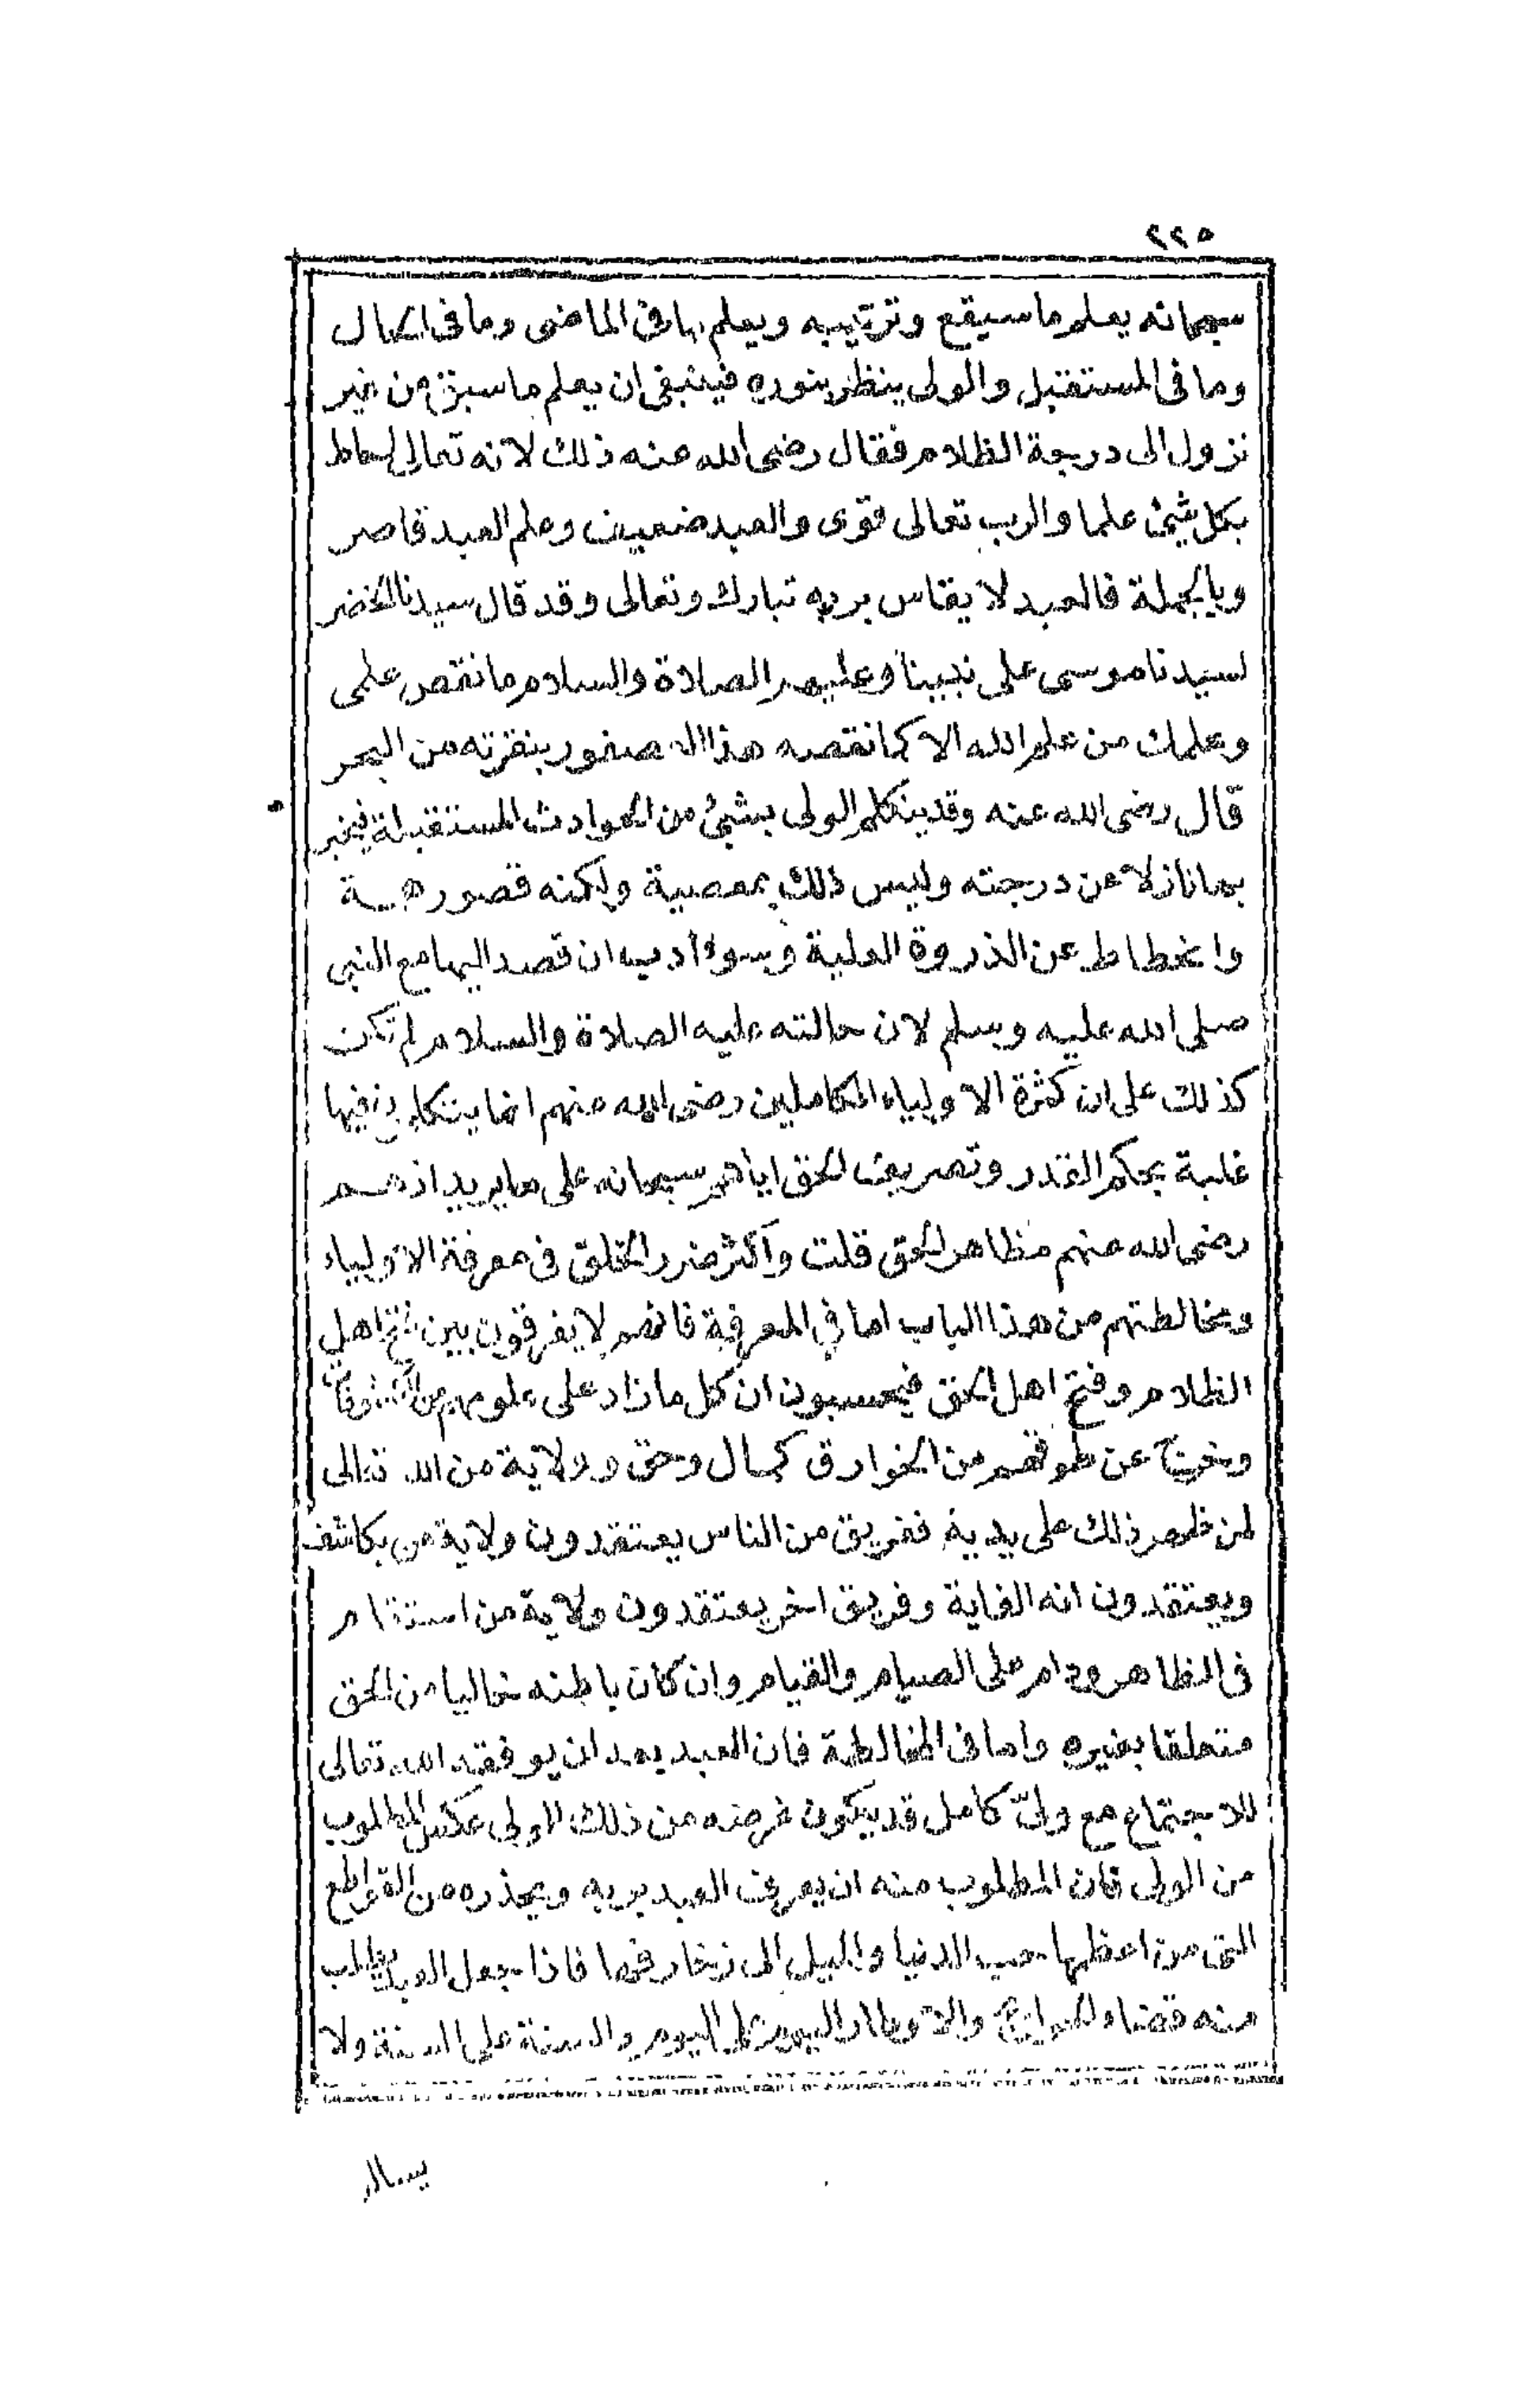 ٢٢٥
سبحانه يعلم ما سيقع وترتيبه ويعلم ما في الماضي وما في الحال
وما في المستقبل والولي ينظر بنوره فينبغي ان يعلم ما سبق من غير
نزول الى درجة الظلام فقال رضي الله عنه ذلك لانه تعالى احاط
بكل شيئ علما والرب تعالى قوى والعبد ضعيف وعلم العبد قاصر
وبالجملة فالعبد لا يقاس بربه تبارك وتعالى وقد قال سيدنا الخضر
لسيدنا موسى على نبينا وعليهم الصلاة والسلام ما نقص علمى
وعلمك من علم الله الا كما نقصه هذا العصفور بنقرته من البحر
قال رضى الله عنه وقد يتكلم الولى بشيئ من الحوادث المستقبلة فيخبر
بها نازلا عن درجته وليس ذلك بمعصية ولكنه قصور همة
وانحطاط عن الذروة العلية وسوء أدب ان قصد اليها مع النبى
صلى الله عليه وسلم لان حالته عليه الصلاة والسلام لم تكن
كذلك على ان كثرة الاولياء الكاملين رضى الله عنهم انما يتكلمون فيها
غلبة بحكم القدر وتصريف الحق اياهم سبحانه على ما يريد اذ هم
رضى الله عنهم مظاهر الحق قلت واكثر ضرر الخلق في معرفة الاولياء
ومخالطتهم من هذا الباب اما في المعرفة فانهم لا يفرقون بين فتح اهل
الظلام وفتح اهل الحق فيحسبون ان كل ما زاد على علومهم من الكشوفات
وخرج عن طوقهم من الخوارق كمال وحق وولاية من الله تعالى
لمن ظهر ذلك على يديه ففريق من الناس يعتقدون ولاية من يكاشف
ويعتقدون انه الغاية وفريق اخر يعتقدون ولاية من استقام
فى الظاهر ودام على الصيام والقيام وان كان باطنه خاليا من الحق
متعلقا بغيره واما فى المخالطة فان العبد بعد ان يوفقه الله تعالى
للاجتماع مع وليّ كامل قد يكون غرضه من ذلك الولى عكس المطلوب
من الولى فان المطلوب منه ان يعرف العبد بربه ويحذره من القواطع
التى من اعظمها حب الدنيا والميل الى زخارفها فاذا جعل العبد يطلب
منه قضاء الحوائج والاوطار اليوم على اليوم والسنة على السنة ولا
يساله